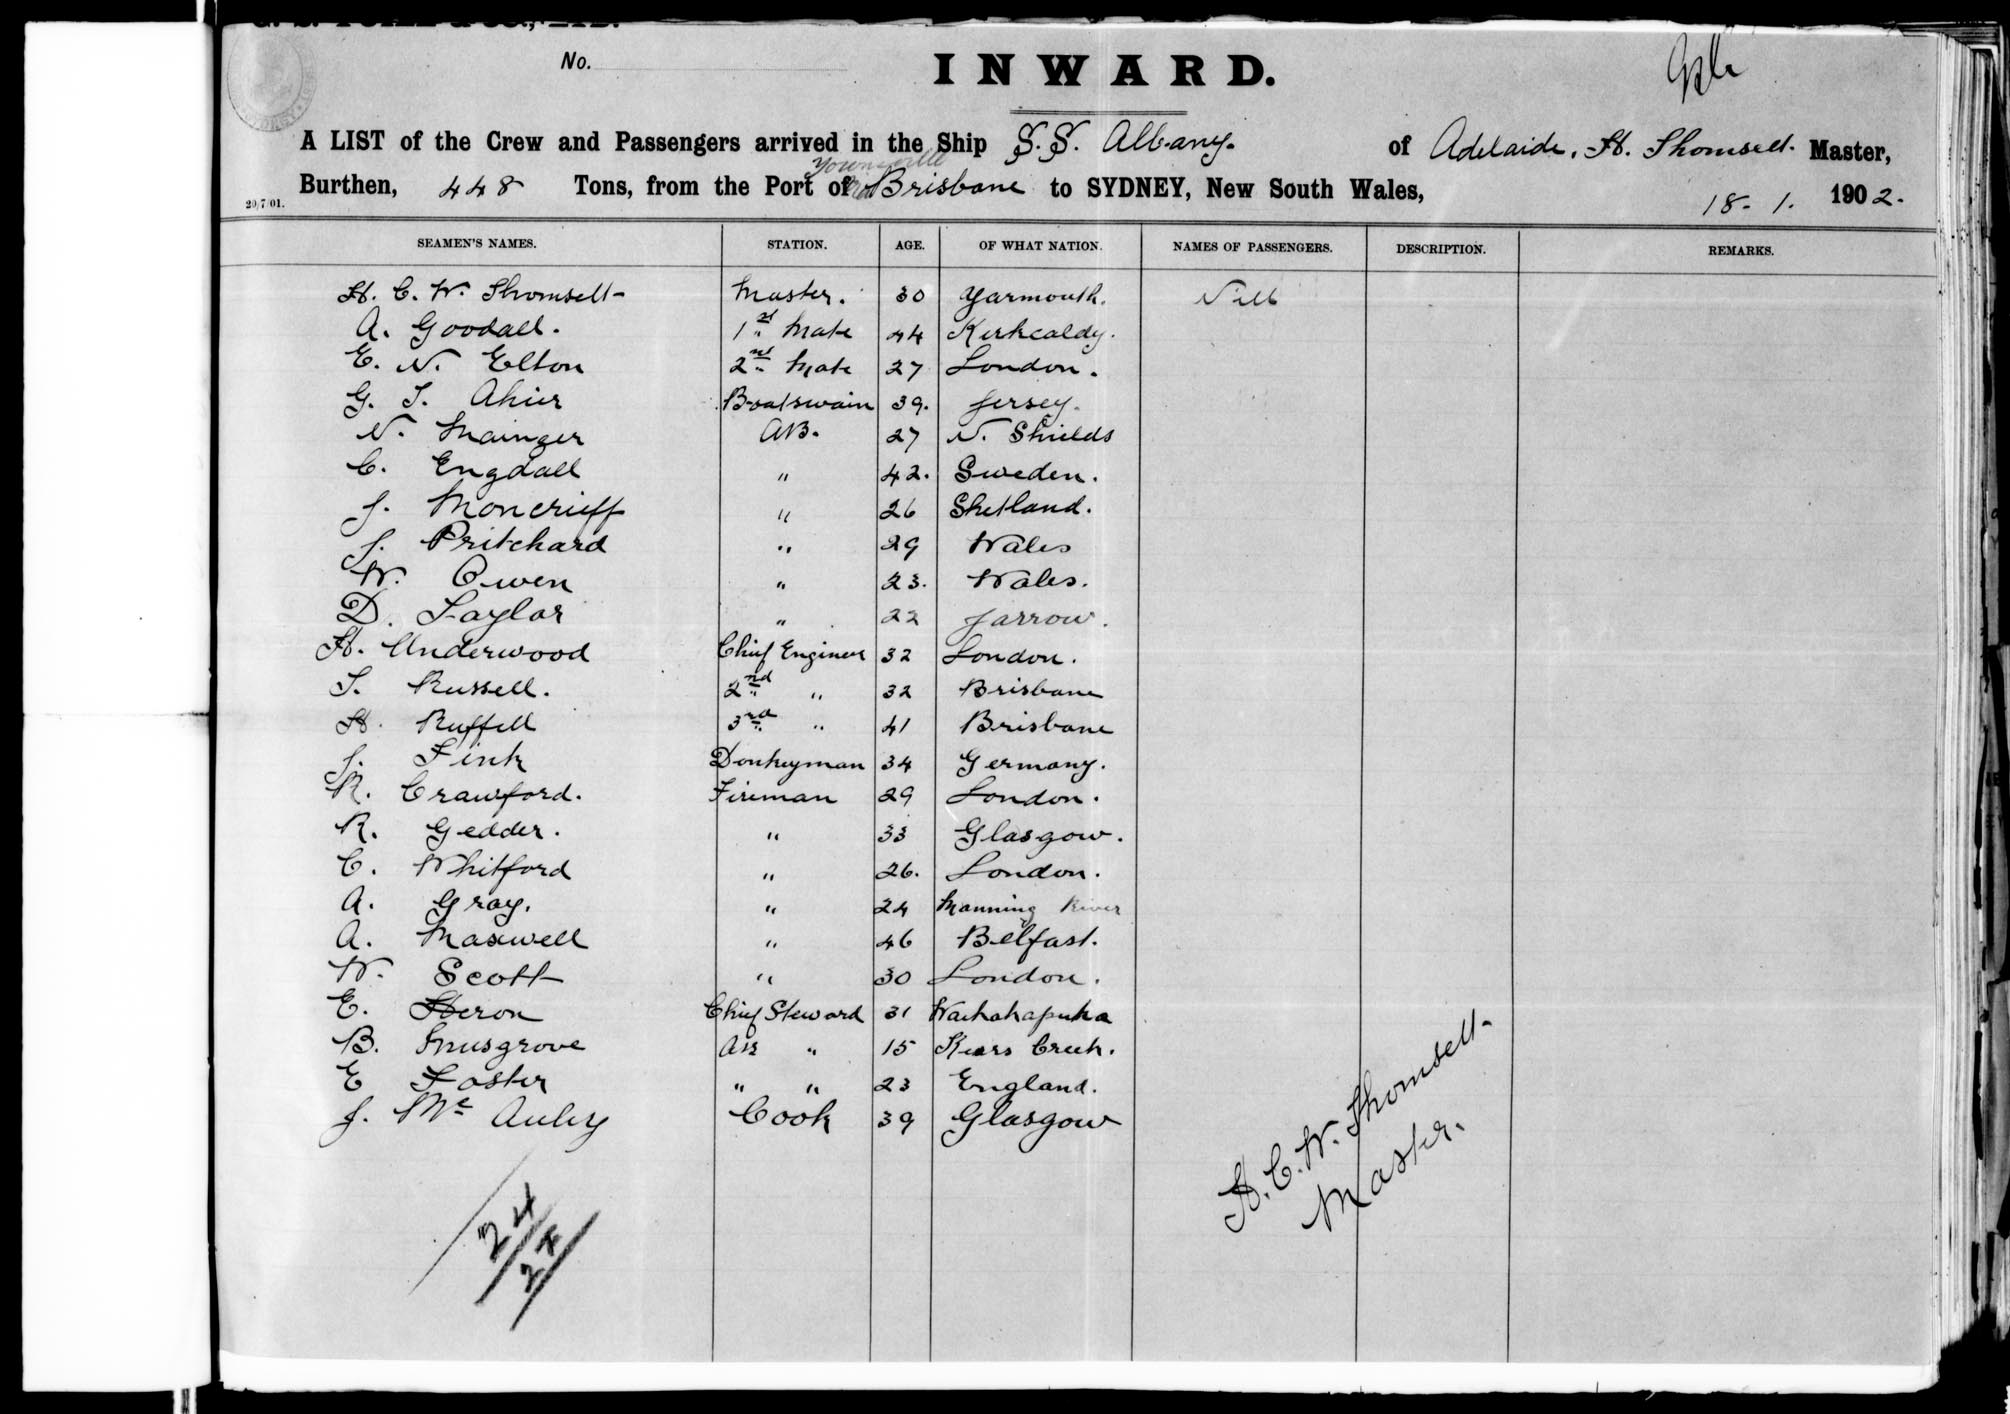 No.
INWARD.
A LIST of the Crew and Passengers arrived in the Ship S.S. Albany. of Adelaide, H. Thomsett. Master,
Townsville
Burthen, 448 Tons, from the Port of Brisbane to SYDNEY, New South Wales, 18. 1. 1902.
20/7/01.
SEAMEN'S NAMES. STATION. AGE. OF WHAT NATION. NAMES OF PASSENGERS. DESCRIPTION. REMARKS.
H. C. W. Thomsett Master. 30 Yarmouth. Nill
A. Goodall. 1st Mate 44 Kirkcaldy.
E. N. Elton 2nd Mate 27 London.
G. T. Ahier Boatswain 39. Jersey.
N. Mainger AB. 27 N. Shields
C. Engdall " 42. Sweden.
J. Moncrieff " 26 Shetland.
J. Pritchard " 29 Wales
W. Owen " 23. Wales.
D. Taylor " 22 Jarrow.
H. Underwood Chief Engineer 32 London.
T. Russell. 2nd " 32 Brisbane
H. Ruffell 3rd " 41 Brisbane
J. Fink Donkeyman 34 Germany.
R. Crawford. Fireman 29 London.
R. Gedder. " 33 Glasgow.
C. Whitford " 26. London.
A. Gray. " 24 Manning River
A. Maxwell " 46 Belfast.
W. Scott " 30 London.
E. Heron Chief Steward 31
B. Musgrove Ass " 15 Kears Creek.
E Foster " " 23 England.
J. Mc Auley Cook 39 Glasgow
H. C. W. Thomsett
Master.
24
24